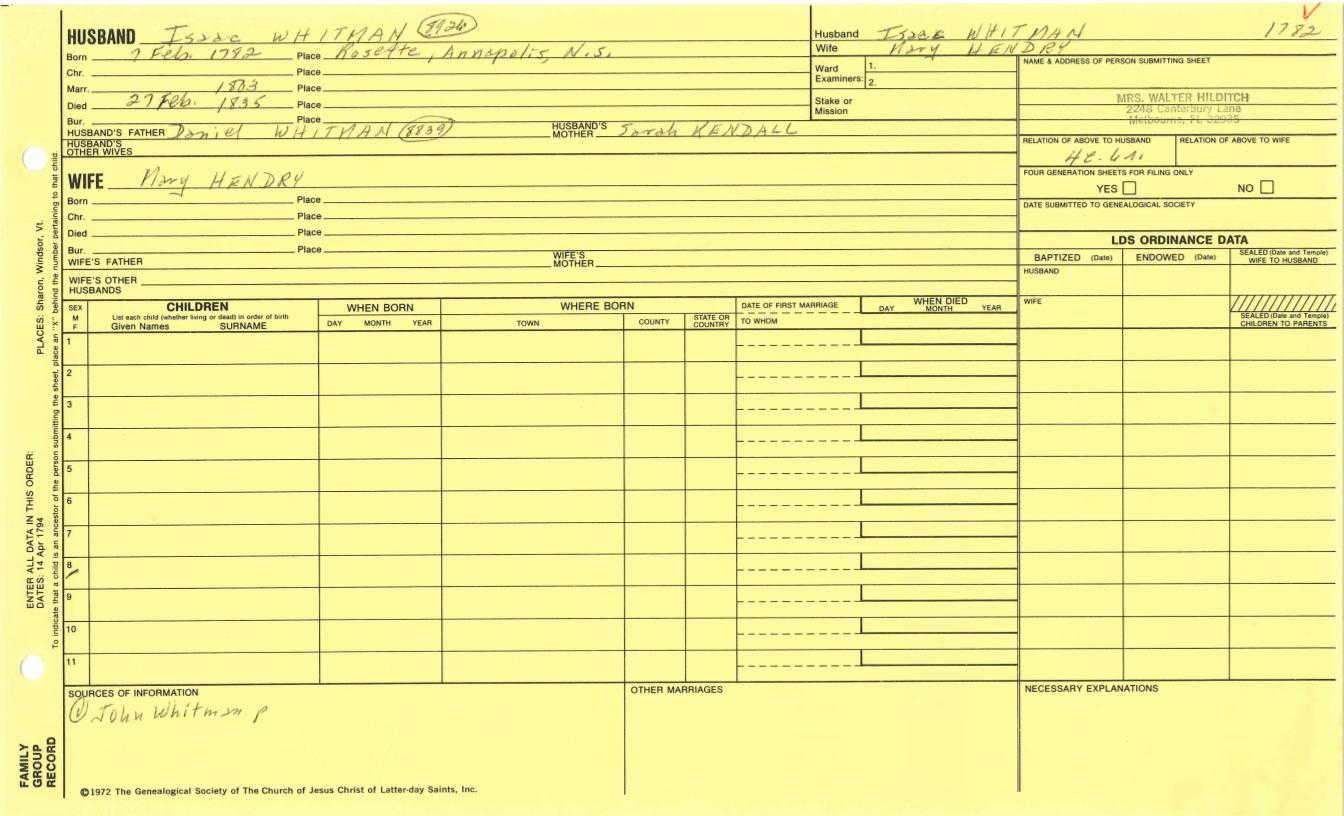 HUSBAND Isaac WHITMAN 8924
Born 7 Feb. 1782 Place Rosette, Annapolis, N.S.
Chr. Place
Marr. 1803 Place
Died 27 Feb. 1835 Place
Bur. Place
HUSBAND'S FATHER Daniel WHITMAN (8839) HUSBAND'S MOTHER Sarah KENDALL
HUSBAND'S OTHER WIVES
WIFE Mary HENDRY
Born Place
Chr. Place
Died Place
Bur. Place
WIFE'S FATHER WIFE'S MOTHER
WIFE'S OTHER HUSBANDS
Husband Isaac WHITMAN 1782
Wife Mary HENDRY
Ward Examiners: 1.
2.
Stake or Mission
NAME & ADDRESS OF PERSON SUBMITTING SHEET
MRS. WALTER HILDITCH
2248 Canterbury Lane
Melbourne, FL 32935
RELATION OF ABOVE TO HUSBAND RELATION OF ABOVE TO WIFE
FOUR GENERATION SHEETS FOR FILING ONLY
YES NO
DATE SUBMITTED TO GENEALOGICAL SOCIETY
LDS ORDINANCE DATA
BAPTIZED (Date) ENDOWED (Date) SEALED (Date and Temple) WIFE TO HUSBAND
HUSBAND
WIFE
SEALED (Date and Temple) CHILDREN TO PARENTS
SEX M F
CHILDREN
List each child (whether living or dead) in order of birth
Given Names SURNAME
WHEN BORN
DAY MONTH YEAR
WHERE BORN
TOWN COUNTY STATE OR COUNTRY
DATE OF FIRST MARRIAGE
TO WHOM
WHEN DIED
DAY MONTH YEAR
1
2
3
4
5
6
7
8
9
10
11
SOURCES OF INFORMATION
① John Whitman p
OTHER MARRIAGES
NECESSARY EXPLANATIONS
©1972 The Genealogical Society of The Church of Jesus Christ of Latter-day Saints, Inc.
ENTER ALL DATA IN THIS ORDER:
DATES: 14 Apr 1794 PLACES: Sharon, Windsor, Vt.
To indicate that a child is an ancestor of the person submitting the sheet, place an "X" behind the number pertaining to that child.
FAMILY
GROUP
RECORD